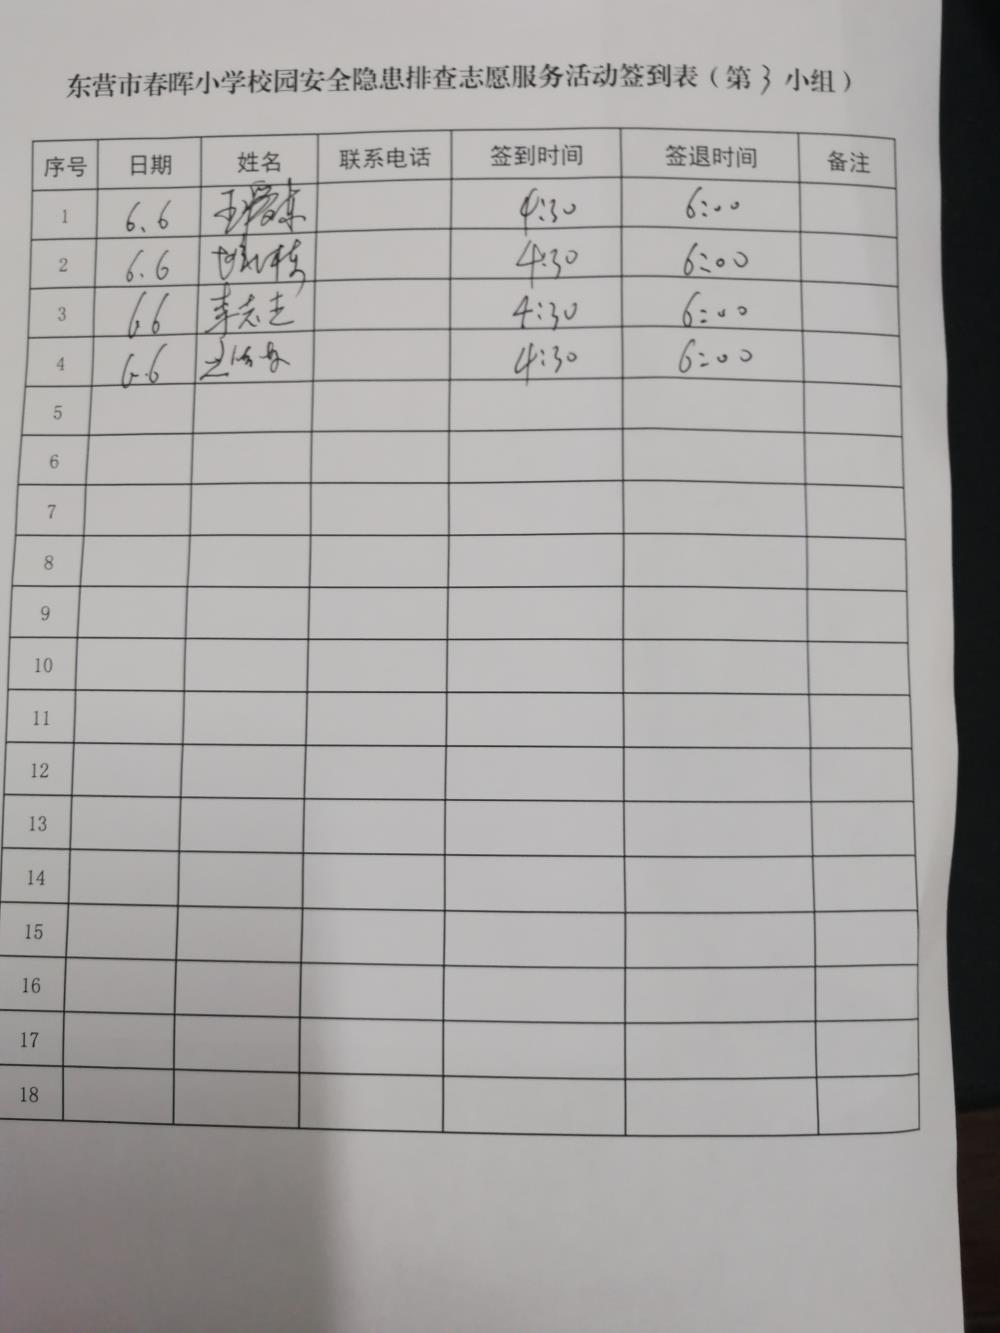 东营市春晖小学校园安全隐患排查志愿服务活动签到表（第3小组）
序号 日期 姓名 联系电话 签到时间 签退时间 备注
1 6.6 4:30 6:00
2 6.6 4:30 6:00
3 6.6 李志志 4:30 6:00
4 6.6 4:30 6:00
5
6
7
8
9
10
11
12
13
14
15
16
17
18